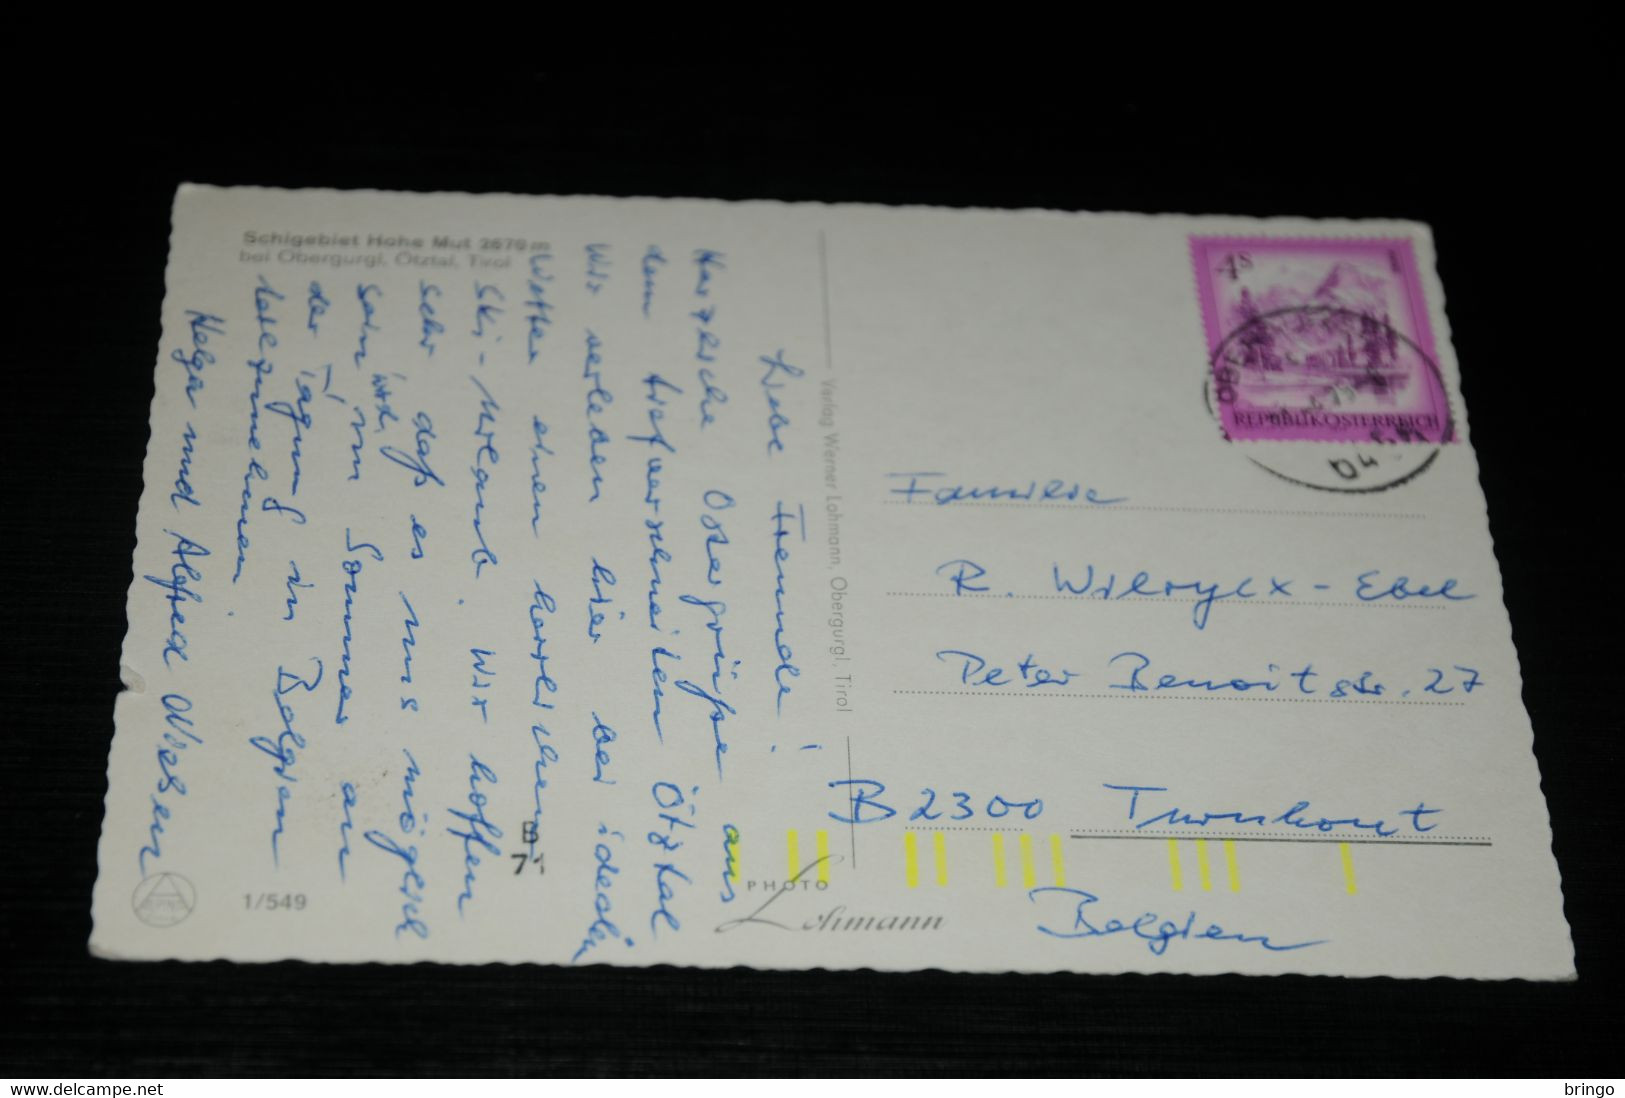 Schigebiet Hohe Mut 2670 m
bei Obergurgl, Ötztal, Tirol
Liebe Freunde!
Herzliche Ostergrüße aus
dem tiefverschneiten Ötztal
Wir verleben hier bei idealem
Wetter einen herrlichen
Ski-Urlaub. Wir hoffen
sehr daß es uns möglich
sein wird, im Sommer an
der Tagung in Belgien
teilzunehmen
Helga und Alfred Nießen
1/549
Verlag Werner Lohmann, Obergurgl, Tirol
PHOTO
Lohmann
B
7
4 S
REPUBLIK ÖSTERREICH
Familie
R. Wilrycx-Ebel
Peter Benoitstr. 27
B 2300 Turnhout
Belgien
© For stamps and collectibles, visit www.delcampe.net
bringo